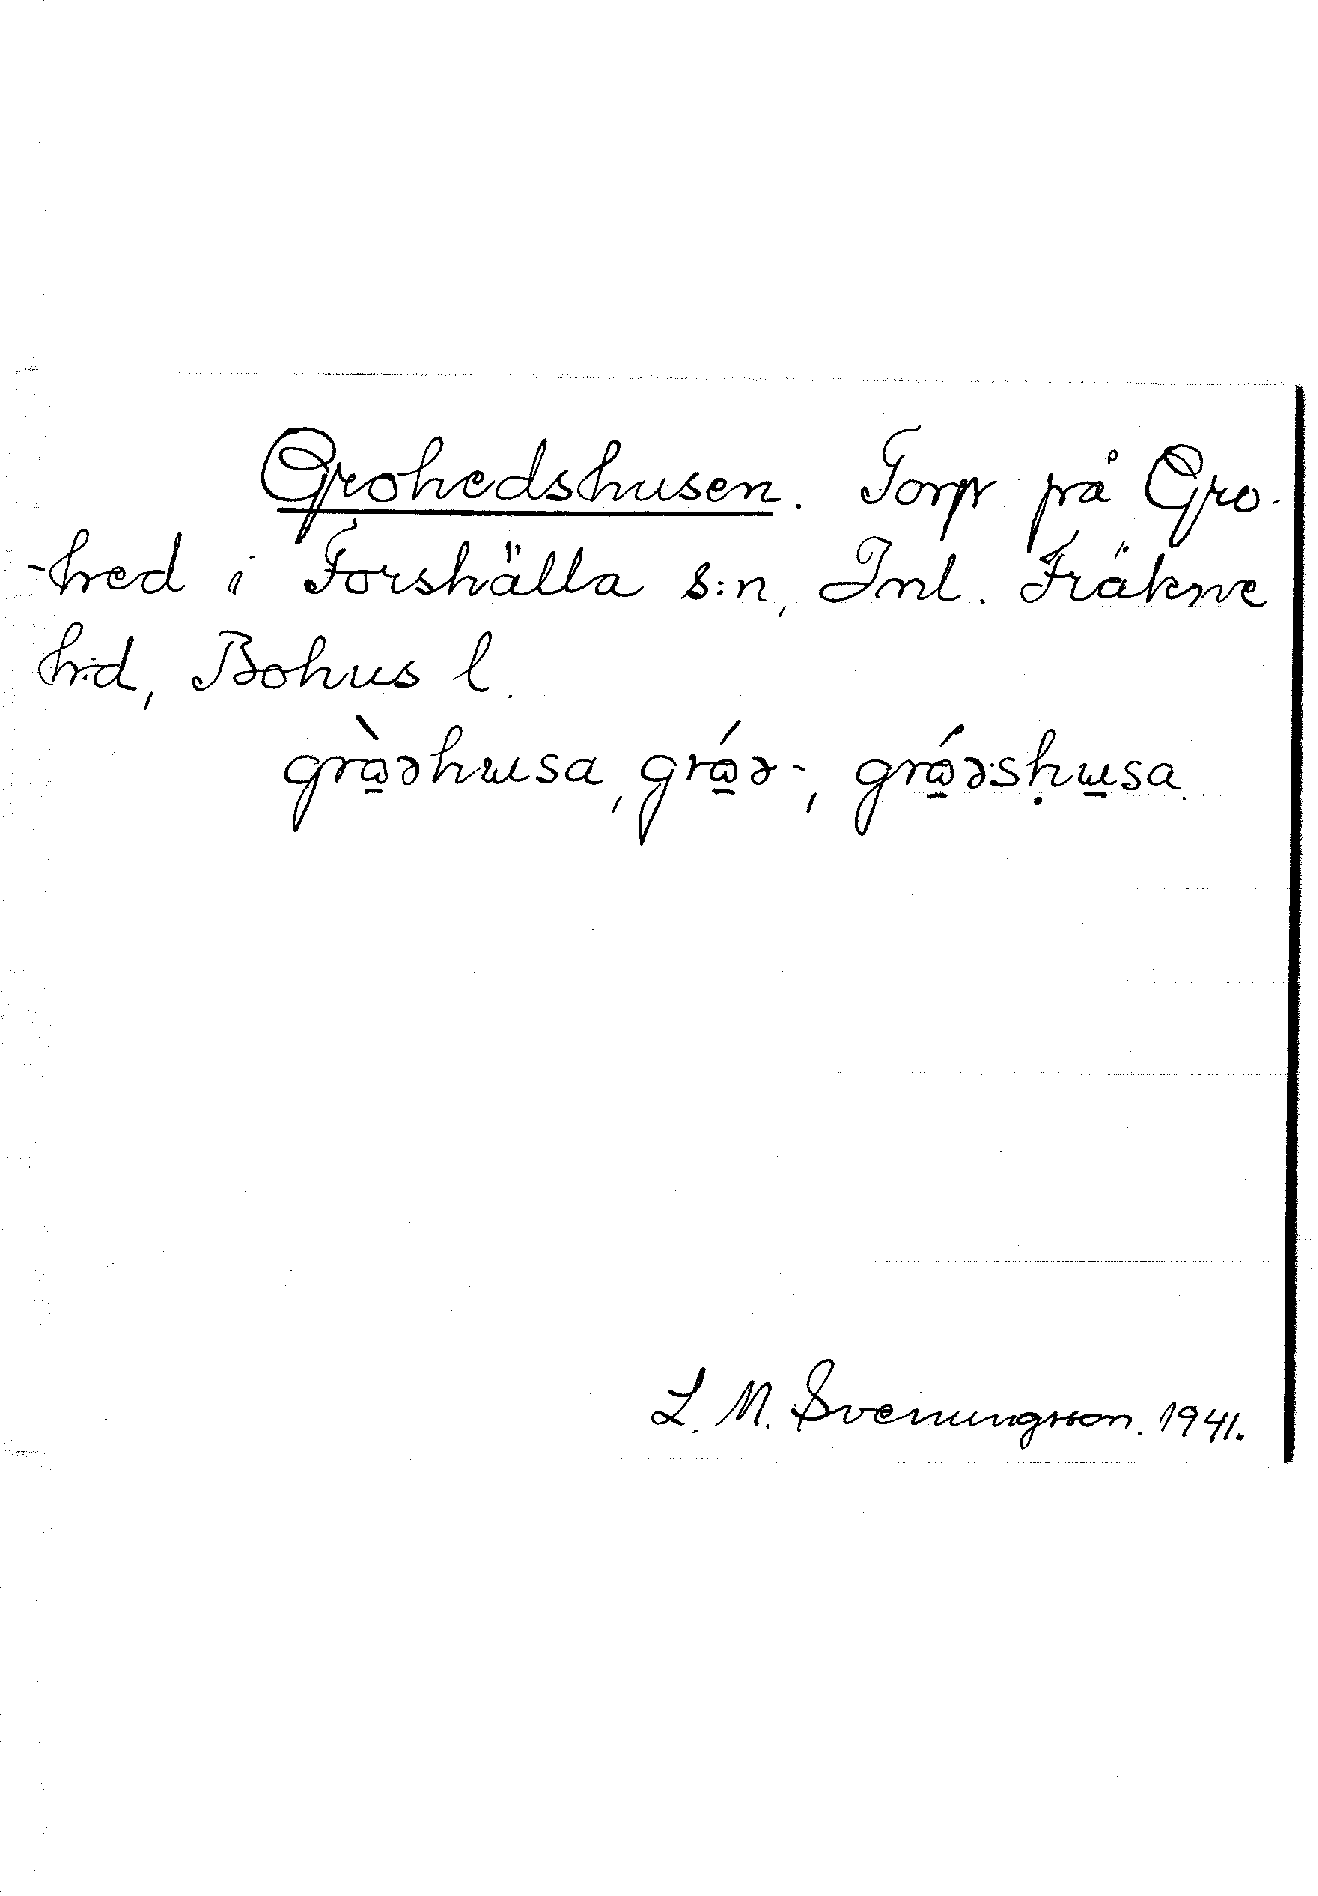 Grohedshusen. Torp på Gro-
-hed i Forshälla s:n, Inl. Fräkne
hd, Bohus l.
grὼ̲əhusa, grώ̲ə-, grώ̲əsḥu̲sa.
L. M. Svenungsson. 1941.